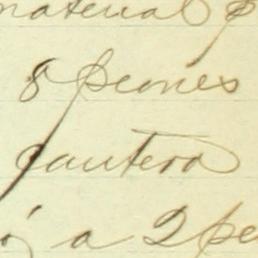 material p
8 peones
cantera
a 2 pe